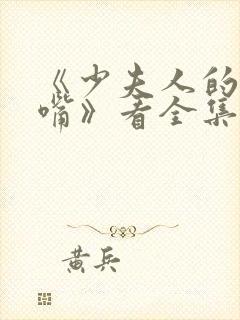 《少夫人的
嘴》看全集
黄兵